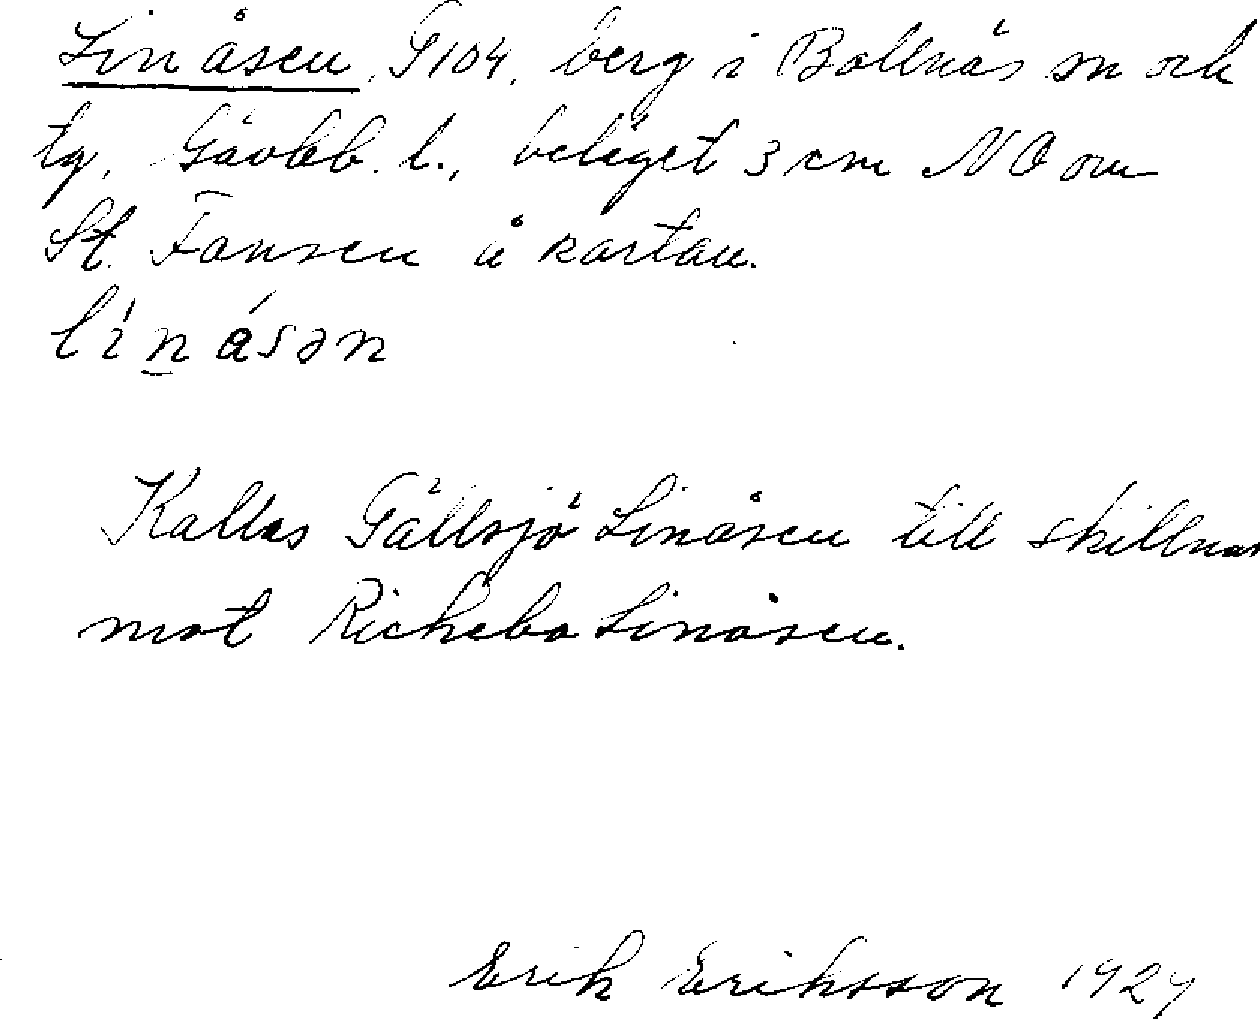 Linåsen, G104, berg i Bollnäs sn och
tg, Gävleb. l., beläget 3 cm NO om
St. Fansen å kartan.
línásən
Kallas Gällsjö Linåsen till skillnad
mot Richebo Linåsen.
Erik Eriksson 1929